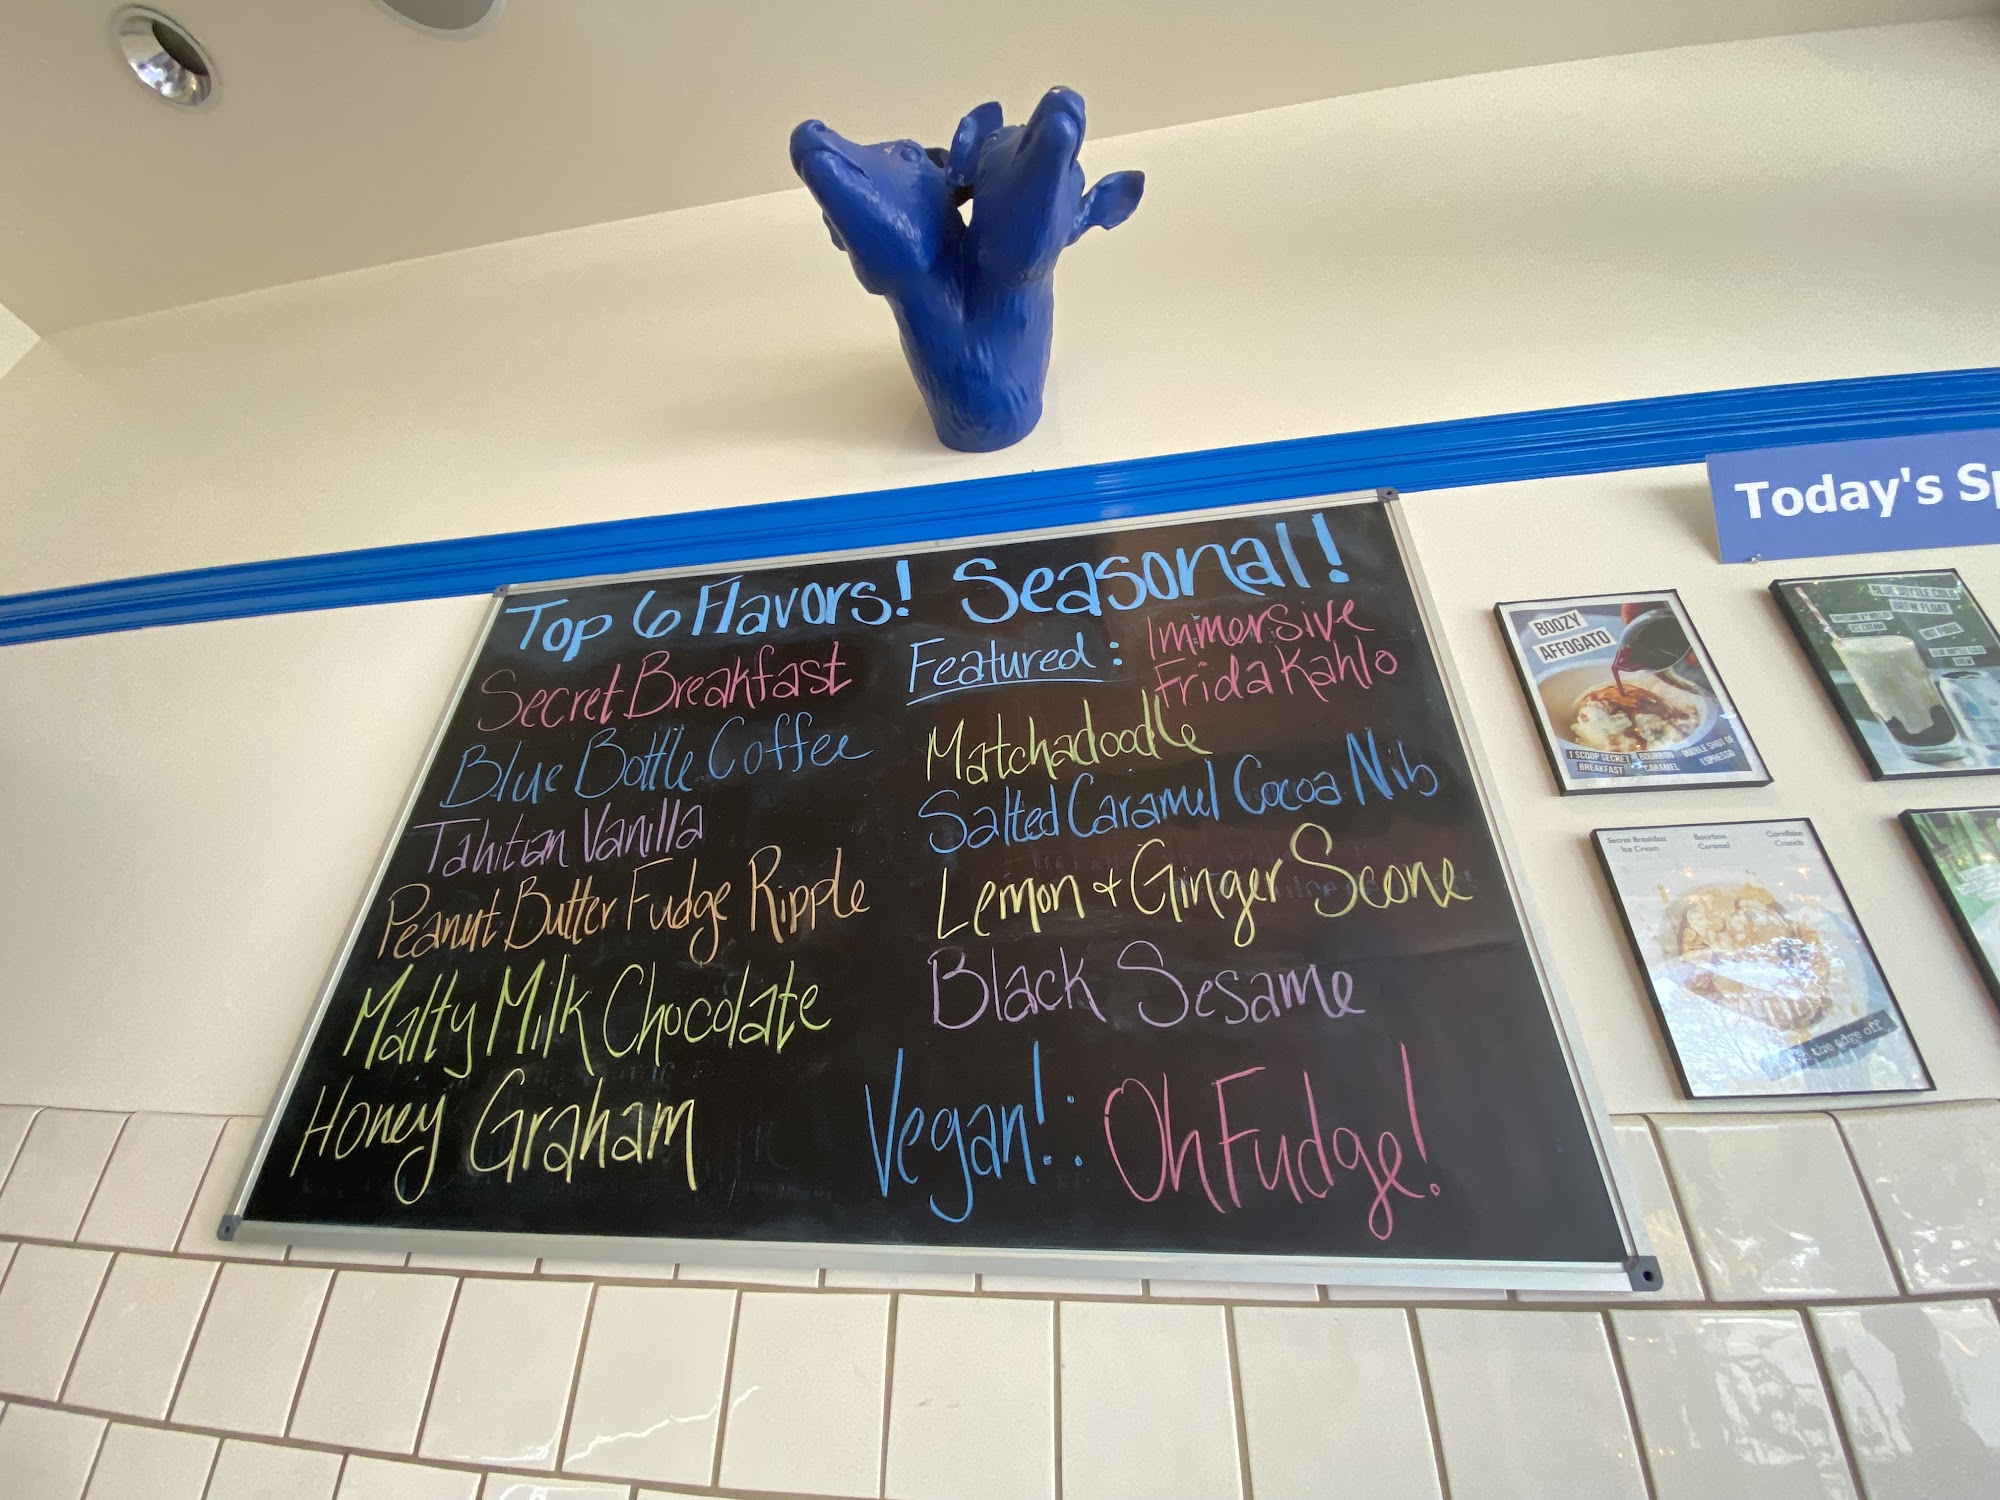 Top 6 Flavors!
Secret Breakfast
Blue Bottle Coffee
Tahitian Vanilla
Peanut Butter Fudge Ripple
Malty Milk Chocolate
Honey Graham
Seasonal!
Featured: Immersive
Frida Kahlo
Matchadoodle
Salted Caramel Cocoa Nib
Lemon + Ginger Scone
Black Sesame
Vegan!: Oh Fudge!
Today's Sp
BOOZY
AFFOGATO
1 SCOOP SECRET
BREAKFAST
BOURBON
CARAMEL
DOUBLE SHOT OF
ESPRESSO
BLUE BOTTLE COLD
BREW FLOAT
Secret Breakfast
Ice Cream
Bourbon
Caramel
Cornflake
Crunch
the edge off